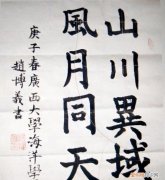 山川異域
風月同天
庚子春廣西大學海洋學
趙博義書